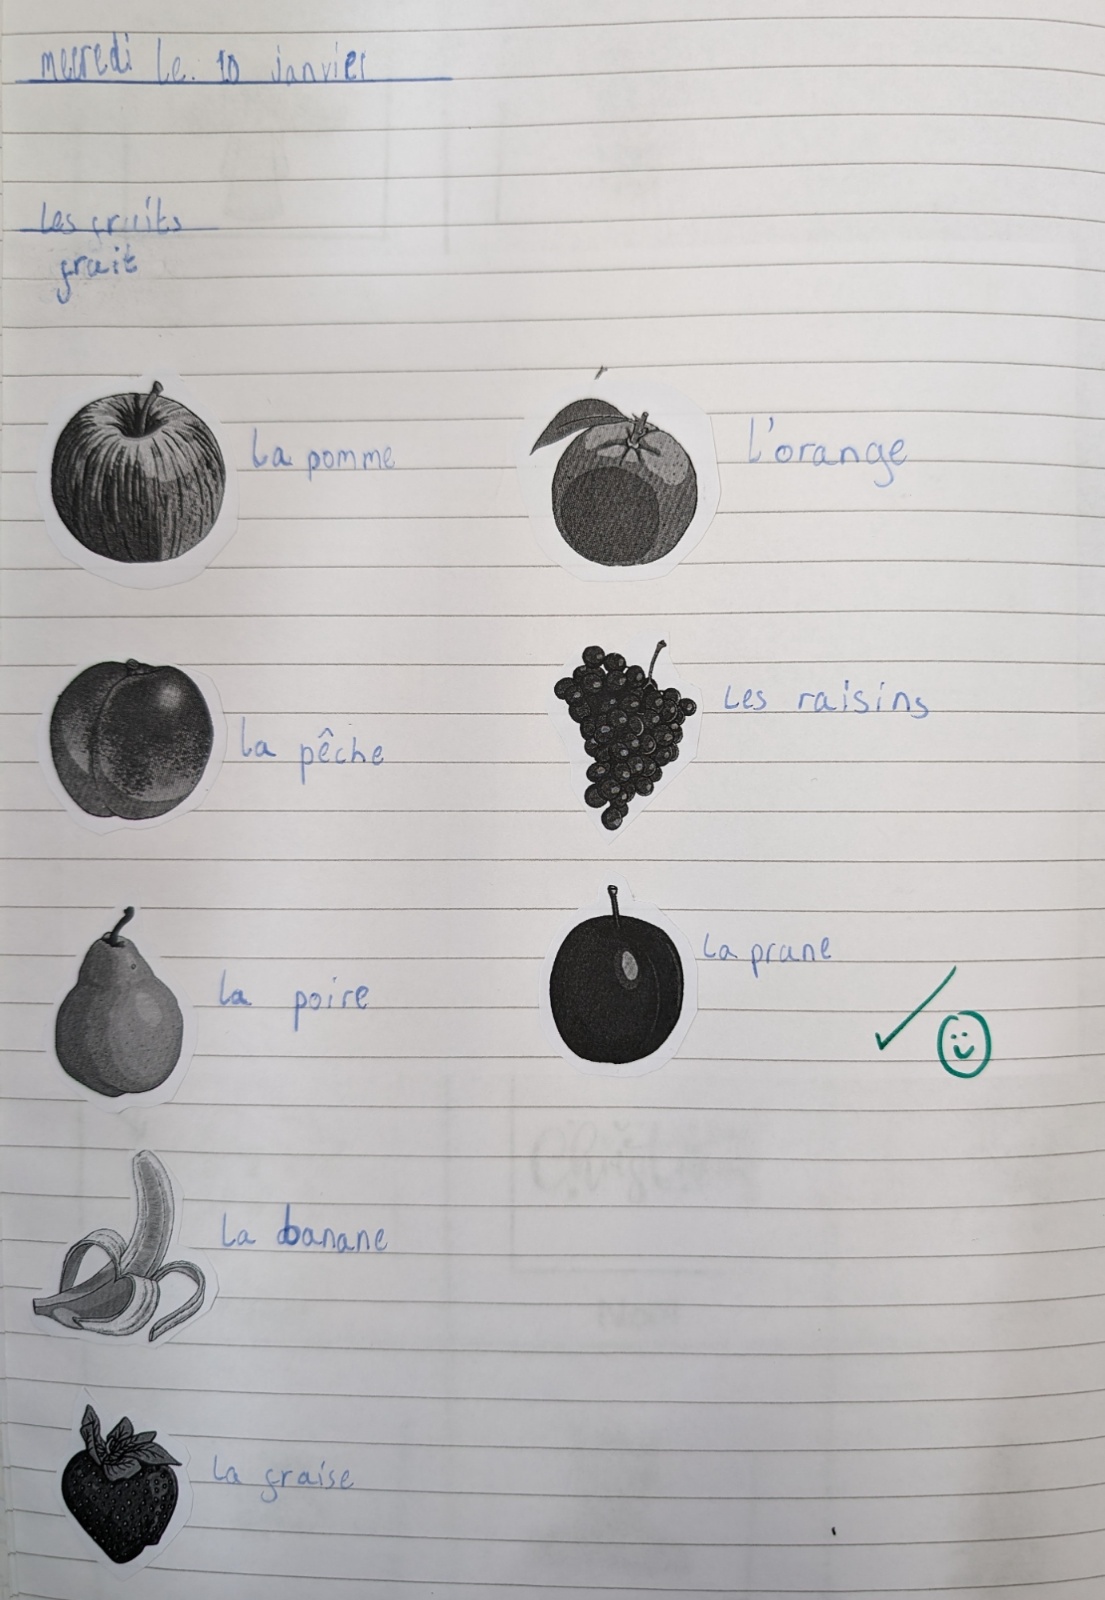 mecredi le. 10 janvier
Les fruits
fruit
la pomme
l'orange
la pêche
Les raisins
la poire
La prune
La banane
La fraise